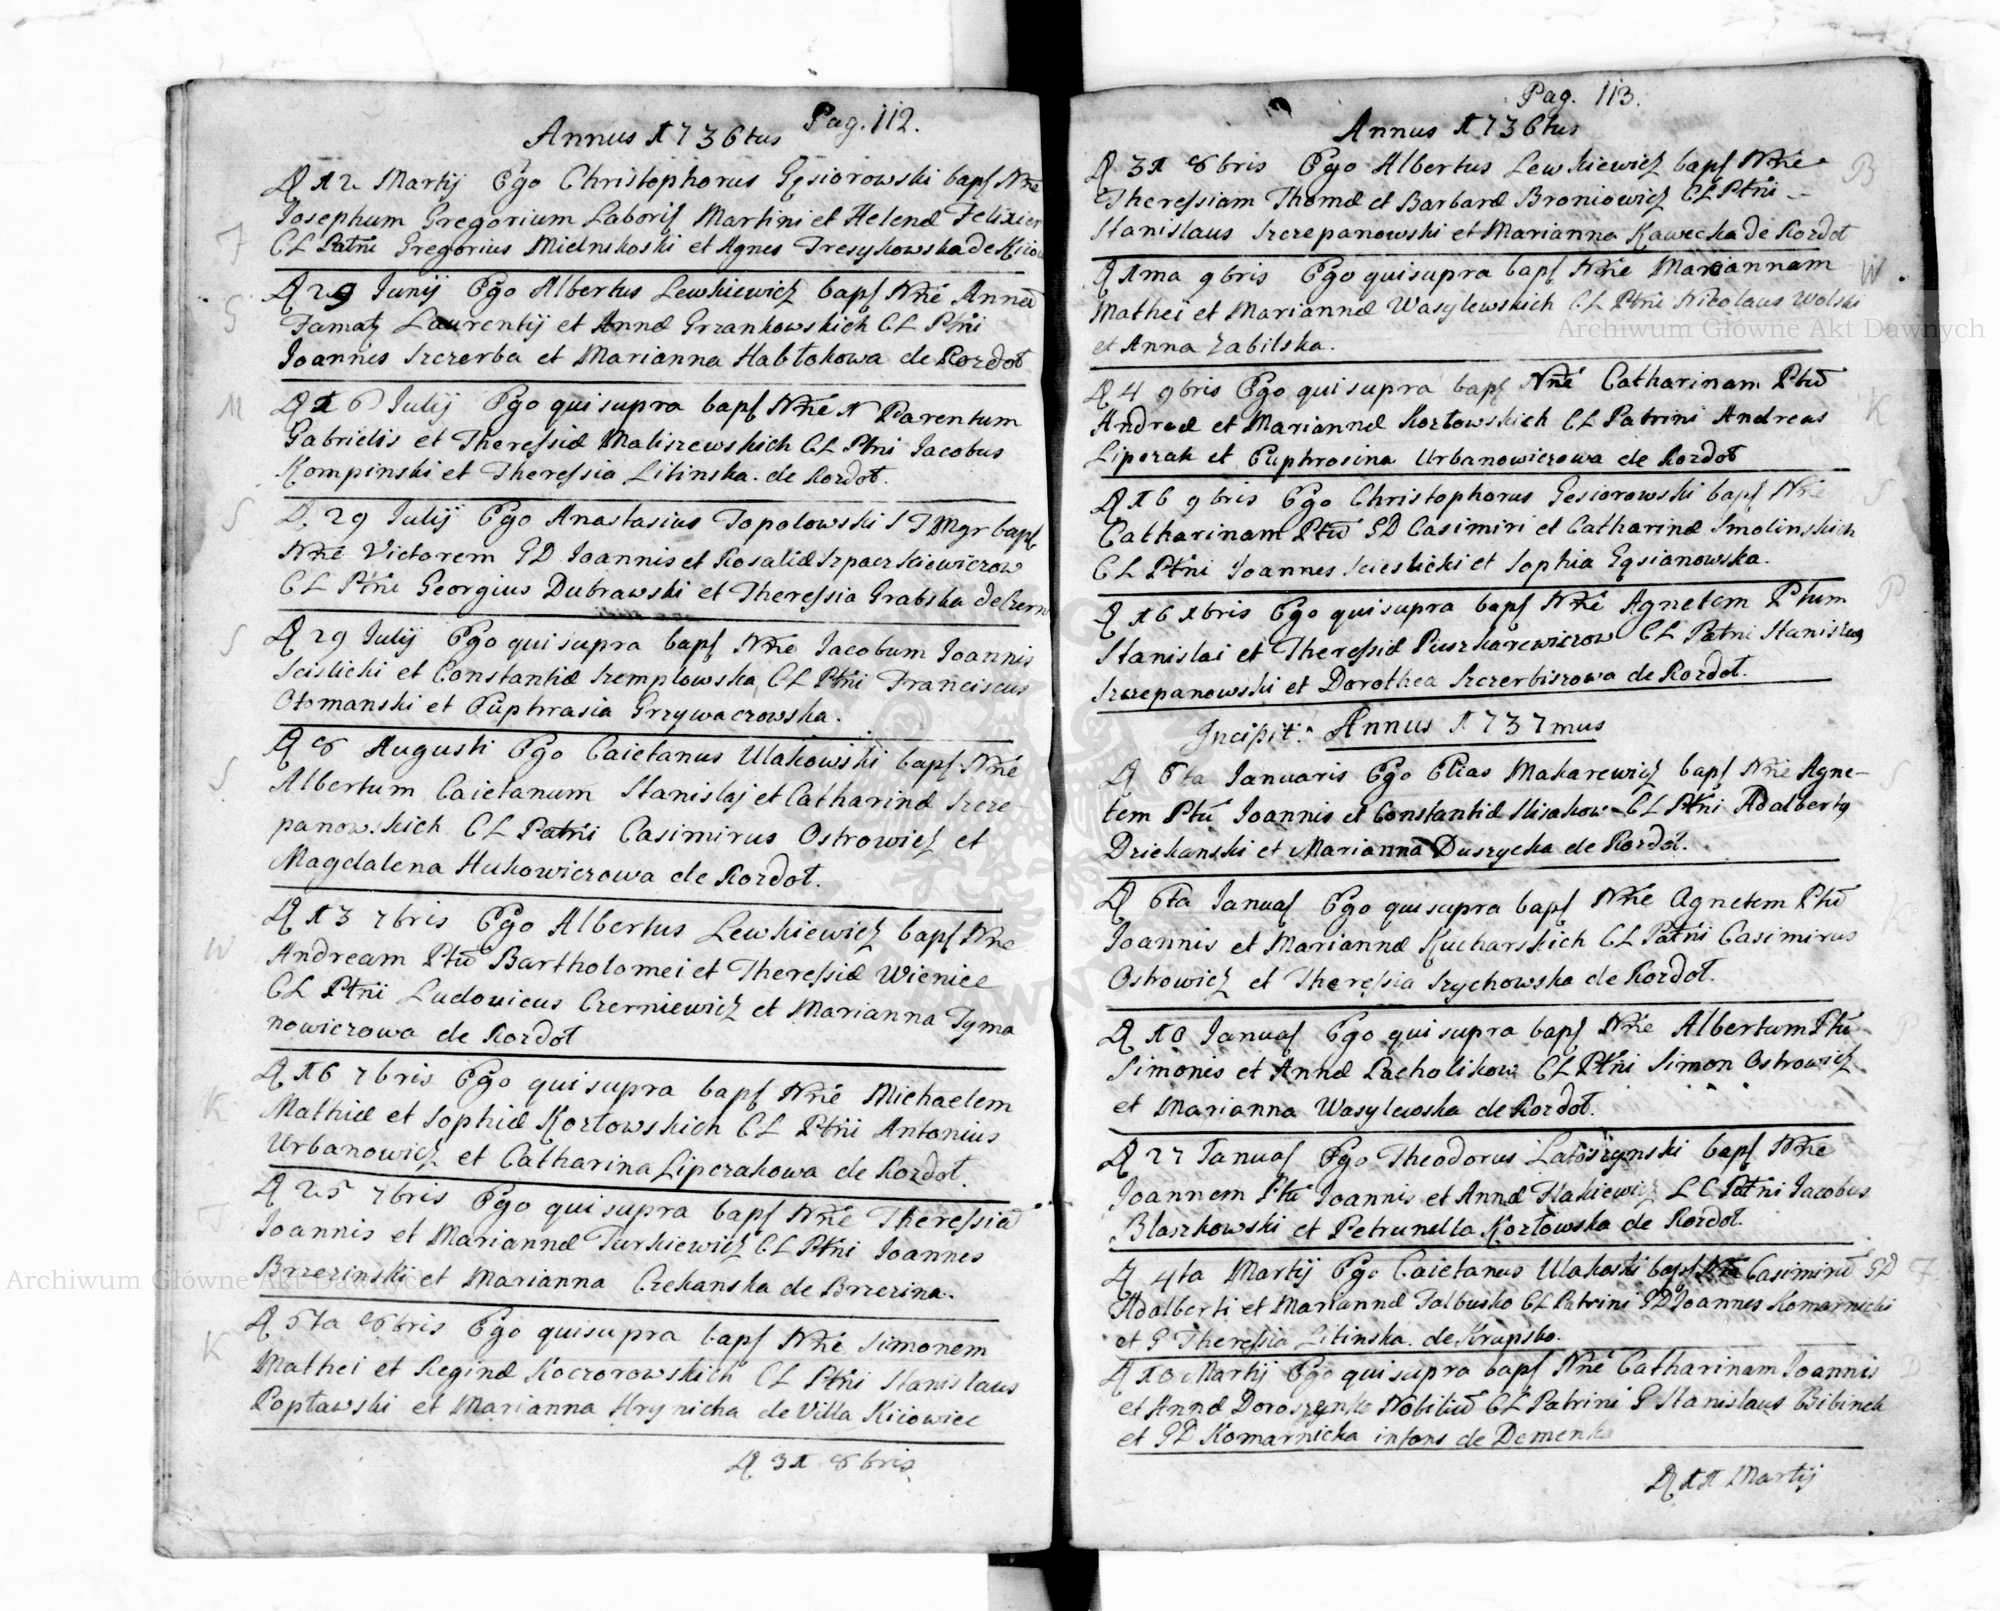 Pag. 112.
Annus 1736tus
D 12 Martij Ego Christophorus Gąsiorowski bapt Nne
Iosephum Gregorium Laboris Martini et Helenæ
CL Patni Gregorius Mielnikoski et Agnes Tresykowska de
D 29 Junij Ego Albertus Lewkiewicz bapt Nne Annā
Famatę Laurentij et Annæ Grzankowskich CL Ptni
Ioannes Szczerba et Marianna Habłakowa de Kozdoł
D 16 Julij Ego qui supra bapt Nne N Parentum
Gabrielis et Theressiæ Maliszewskich CL Ptni Iacobus
Kompinski et Theressia Litinska. de Kozdoł.
D. 29 Julij Ego Anastasius Topolowski S T Mgr bapt
Nne Victorem GD Ioannis et Rosaliæ Szpaczkiewiczow
CL Ptni Georgius Dubrawski et Theressia Grabska de Czern
D 29 Julij Ego qui supra bapt Nne Iacobum Ioannis
Scislicki et Constantiæ Szemplowska CL Ptni Franciscus
Otomanski et Euphrasia Grzywaczowska.
D 8 Augusti Ego Caietanus Ulakowski bapt Nne
Albertum Caietanum Stanislaj et Catharinæ Szcze-
panowskich CL Patni Casimirus Ostrowicz et
Magdalena Hukowiczowa de Kozdoł.
D 13 7bris Ego Albertus Lewkiewicz bapt Nne
Andream Ptū Bartholomei et Theressiæ Wieniec
CL Ptni Ludovicus Czerniewicz et Marianna Tyma
nowiczowa de Kozdoł
D 16 7bris Ego qui supra bapt Nne Michaelem
Mathiæ et Sophiæ Kozłowskich CL Ptni Antonius
Urbanowicz et Catharina Lipczakowa de Kozdoł.
D 25 7bris Ego qui supra bapt Nne Theressiā
Ioannis et Mariannæ Turkiewicz CL Ptni Ioannes
Brzezinski et Marianna Czekanska de Brzezina.
D 5ta 8bris Ego qui supra bapt Nne Simonem
Mathei et Reginæ Koczorowskich CL Ptni Stanislaus
Popławski et Marianna Hrynicka de Villa Kiiowiec
D 31 8bris
Pag. 113.
Annus 1736tus
D 31 8bris Ego Albertus Lewkiewicz bapt Nne
Theressiam Thomæ et Barbaræ Broniowicz CL Ptni
Stanislaus Szczepanowski et Marianna Kawecka de Kozdoł
D 1ma 9bris Ego qui supra bapt Nne Mariannam
Mathei et Mariannæ Wasylewskich CL Ptni Nicolaus Wolski
et Anna Zabilska.
D 4 9bris Ego qui supra bapt Nne Catharinam Ptū
Andreæ et Mariannæ Kozłowskich CL Patrini Andreas
Lipczak et Euphrosina Urbanowiczowa de Kozdoł
D 16 9bris Ego Christophorus Gesiorowski bapt Nne
Catharinam Ptū GD Casimiri et Catharinæ Smolinskich
CL Ptni Ioannes Scieslicki et Sophia Gąsianowska.
D 16 xbris Ego qui supra bapt Nne Agnetem Ptum
Stanislai et Theressiæ Puszkarewiczow CL Patni Stanislaus
Szczepanowski et Dorothea Szczerbiszowa de Kozdoł.
Incipit: Annus 1737mus
D 6ta Ianuaris Ego Elias Makarewicz bapt Nne Agne-
tem Ptū Ioannis et Constantiæ Slisakow CL Ptni Adalbertq
Dziekanski et Marianna Duszycka de Kozdoł.
D 6ta Ianuaſ Ego qui supra bapt Nne Agnetem Ptū
Ioannis et Mariannæ Kucharskich CL Patni Casimirus
Ostrowicz et Theressia Szychowska de Kozdoł.
D 10 Ianuaſ Ego qui supra bapt Nne Albertum Ptū
Simonis et Annæ Pacholikow CL Ptni Simon Ostrowicz
et Marianna Wasylewska de Kozdoł.
D 27 Ianuaſ Ego Theodorus Latoszynski bapt Nne
Ioannem Ptū Ioannis et Annæ Flakiewicz LC Patni Iacobus
Blaszkowski et Petrunella Kozłowska de Kozdoł.
D 4ta Martij Ego Caietanus Ulakoski bapt Casimirū GD
Adalberti et Mariannæ Falbusko CL Patrini GD Ioannes Komarnicki
et G Theressia Litinska de Krupsko.
D 10 Martij Ego qui supra bapt Nne Catharinam Ioannis
et Annæ Nobiliū CL Patrini G Stanislaus Bibinek
et GD Komarnicka infons de Demenka
D 11 Martij
Archiwum Główne Akt Dawnych
Archiwum Główne Akt Dawnych